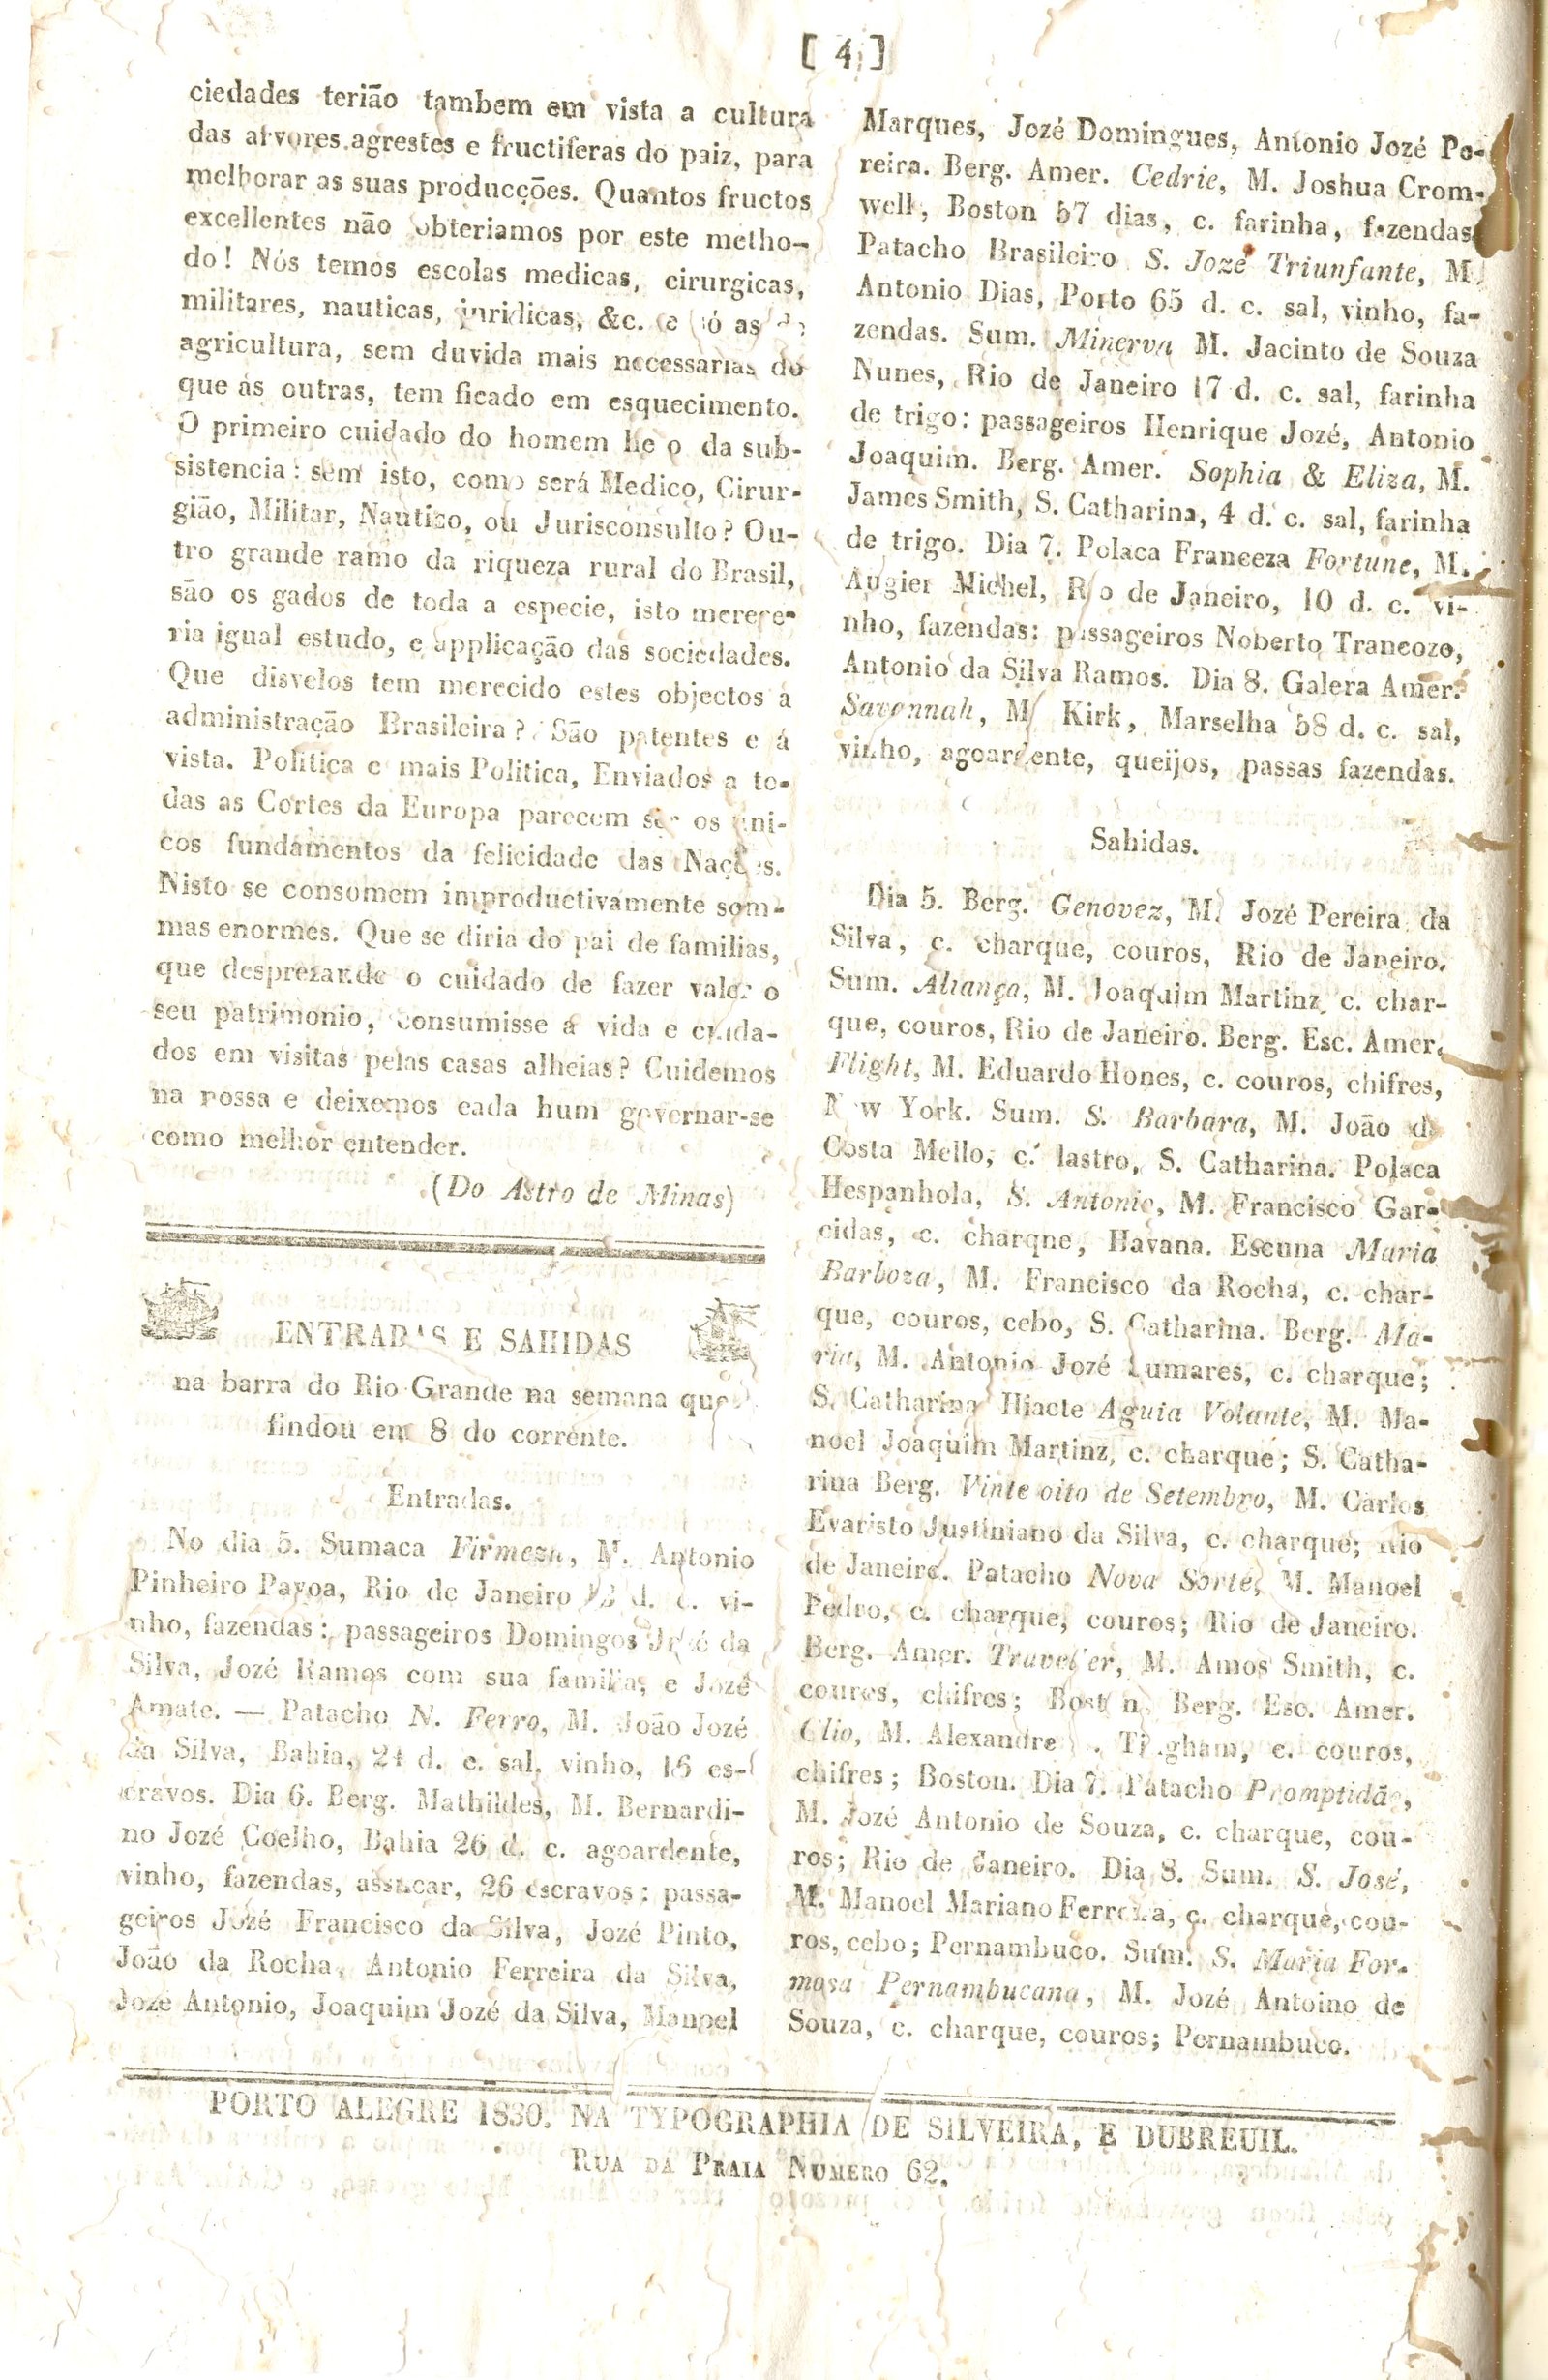 [ 4 ]
ciedades terião tambem em vista a cultura
das arvores agrestes e fructiferas do paiz, para
melhorar as suas producções. Quantos fructos
excellentes não obteriamos por este metho-
do! Nós temos escolas medicas, cirurgicas,
militares, nauticas, juridicas, &c. e só as
agricultura, sem duvida mais necessarias do
que as outras, tem ficado em esquecimento.
O primeiro cuidado do homem he o da sub-
sistencia: sem isto, como será Medico, Cirur-
gião, Militar, Nautico, ou Jurisconsulto? Ou-
tro grande ramo da riqueza rural do Brasil,
são os gados de toda a especie, isto merece-
ria igual estudo, e applicação das sociedades.
Que disvelos tem merecido estes objectos á
administração Brasileira? São patentes e á
vista. Politica e mais Politica, Enviados a to-
das as Cortes da Europa parecem ser os uni-
cos fundamentos da felicidade das Nações.
Nisto se consomem improductivamente som-
mas enormes. Que se diria do pai de familias,
que desprezando o cuidado de fazer valer o
seu patrimonio, consumisse a vida e cuida-
dos em visitas pelas casas alheias? Cuidemos
na nossa e deixemos cada hum governar-se
como melhor entender.
(Do Astro de Minas)
ENTRADAS E SAHIDAS
na barra do Rio Grande na semana que
findou em 8 do corrente.
Entradas.
No dia 5. Sumaca Firmeza, M. Antonio
Pinheiro Pavoa, Rio de Janeiro d. c. vi-
nho, fazendas: passageiros Domingos Jozé da
Silva, Jozé Ramos com sua familia, e Jozé
Amate. — Patacho N. Ferro, M. João Jozé
da Silva, Bahia, 24 d. c. sal, vinho, 16 es-
cravos. Dia 6. Berg. Mathildes, M. Bernardi-
no Jozé Coelho, Bahia 26 d. c. agoardente,
vinho, fazendas, assucar, 26 escravos: passa-
geiros Jozé Francisco da Silva, Jozé Pinto,
João da Rocha, Antonio Ferreira da Silva,
Jozé Antonio, Joaquim Jozé da Silva, Manoel
Marques, Jozé Domingues, Antonio Jozé Pe-
reira. Berg. Amer. Cedrie, M. Joshua Crom-
well, Boston 57 dias, c. farinha, fazendas
Patacho Brasileiro S. Jozé Triunfante, M.
Antonio Dias, Porto 65 d. c. sal, vinho, fa-
zendas. Sum. Minerva M. Jacinto de Souza
Nunes, Rio de Janeiro 17 d. c. sal, farinha
de trigo: passageiros Henrique Jozé, Antonio
Joaquim. Berg. Amer. Sophia & Eliza, M.
James Smith, S. Catharina, 4 d. c. sal, farinha
de trigo. Dia 7. Polaca Franceza Fortune, M.
Augier Michel, Rio de Janeiro, 10 d. c. vi-
nho, fazendas: passageiros Noberto Trancozo,
Antonio da Silva Ramos. Dia 8. Galera Amer.
Savannah, M. Kirk, Marselha 58 d. c. sal,
vinho, agoardente, queijos, passas fazendas.
Sahidas.
Dia 5. Berg. Genovez, M. Jozé Pereira da
Silva, c. charque, couros, Rio de Janeiro.
Sum. Aliança, M. Joaquim Martinz, c. char-
que, couros, Rio de Janeiro. Berg. Esc. Amer.
Flight, M. Eduardo Hones, c. couros, chifres,
New York. Sum. S. Barbara, M. João d
Costa Mello, c. lastro, S. Catharina. Polaca
Hespanhola, S. Antonio, M. Francisco Gar-
cidas, c. charqne, Havana. Escuna Maria
Barboza, M. Francisco da Rocha, c. char-
que, couros, cebo, S. Catharina. Berg. Ma-
ria, M. Antonio Jozé Lumares, c. charque;
S. Catharina Hiacte Aguia Volante, M. Ma-
noel Joaquim Martinz, c. charque; S. Catha-
rina Berg. Vinte oito de Setembro, M. Carlos
Evaristo Justiniano da Silva, c. charque; Rio
de Janeiro. Patacho Nova Sorte, M. Manoel
Pedro, c. charque, couros; Rio de Janeiro.
Berg. Amer. Traveller, M. Amos Smith, c.
couros, chifres; Boston, Berg. Esc. Amer.
Clio, M. Alexandre c. couros,
chifres; Boston. Dia 7. Patacho Promptidão,
M. Jozé Antonio de Souza, c. charque, cou-
ros; Rio de Janeiro. Dia 8. Sum. S. José,
M. Manoel Mariano Ferreira, c. charque, cou-
ros, cebo; Pernambuco. Sum. S. Maria For-
mosa Pernambucana, M. Jozé Antoino de
Souza, c. charque, couros; Pernambuco.
PORTO ALEGRE 1830. NA TYPOGRAPHIA DE SILVEIRA, E DUBREUIL.
RUA DA PRAIA NUMERO 62.